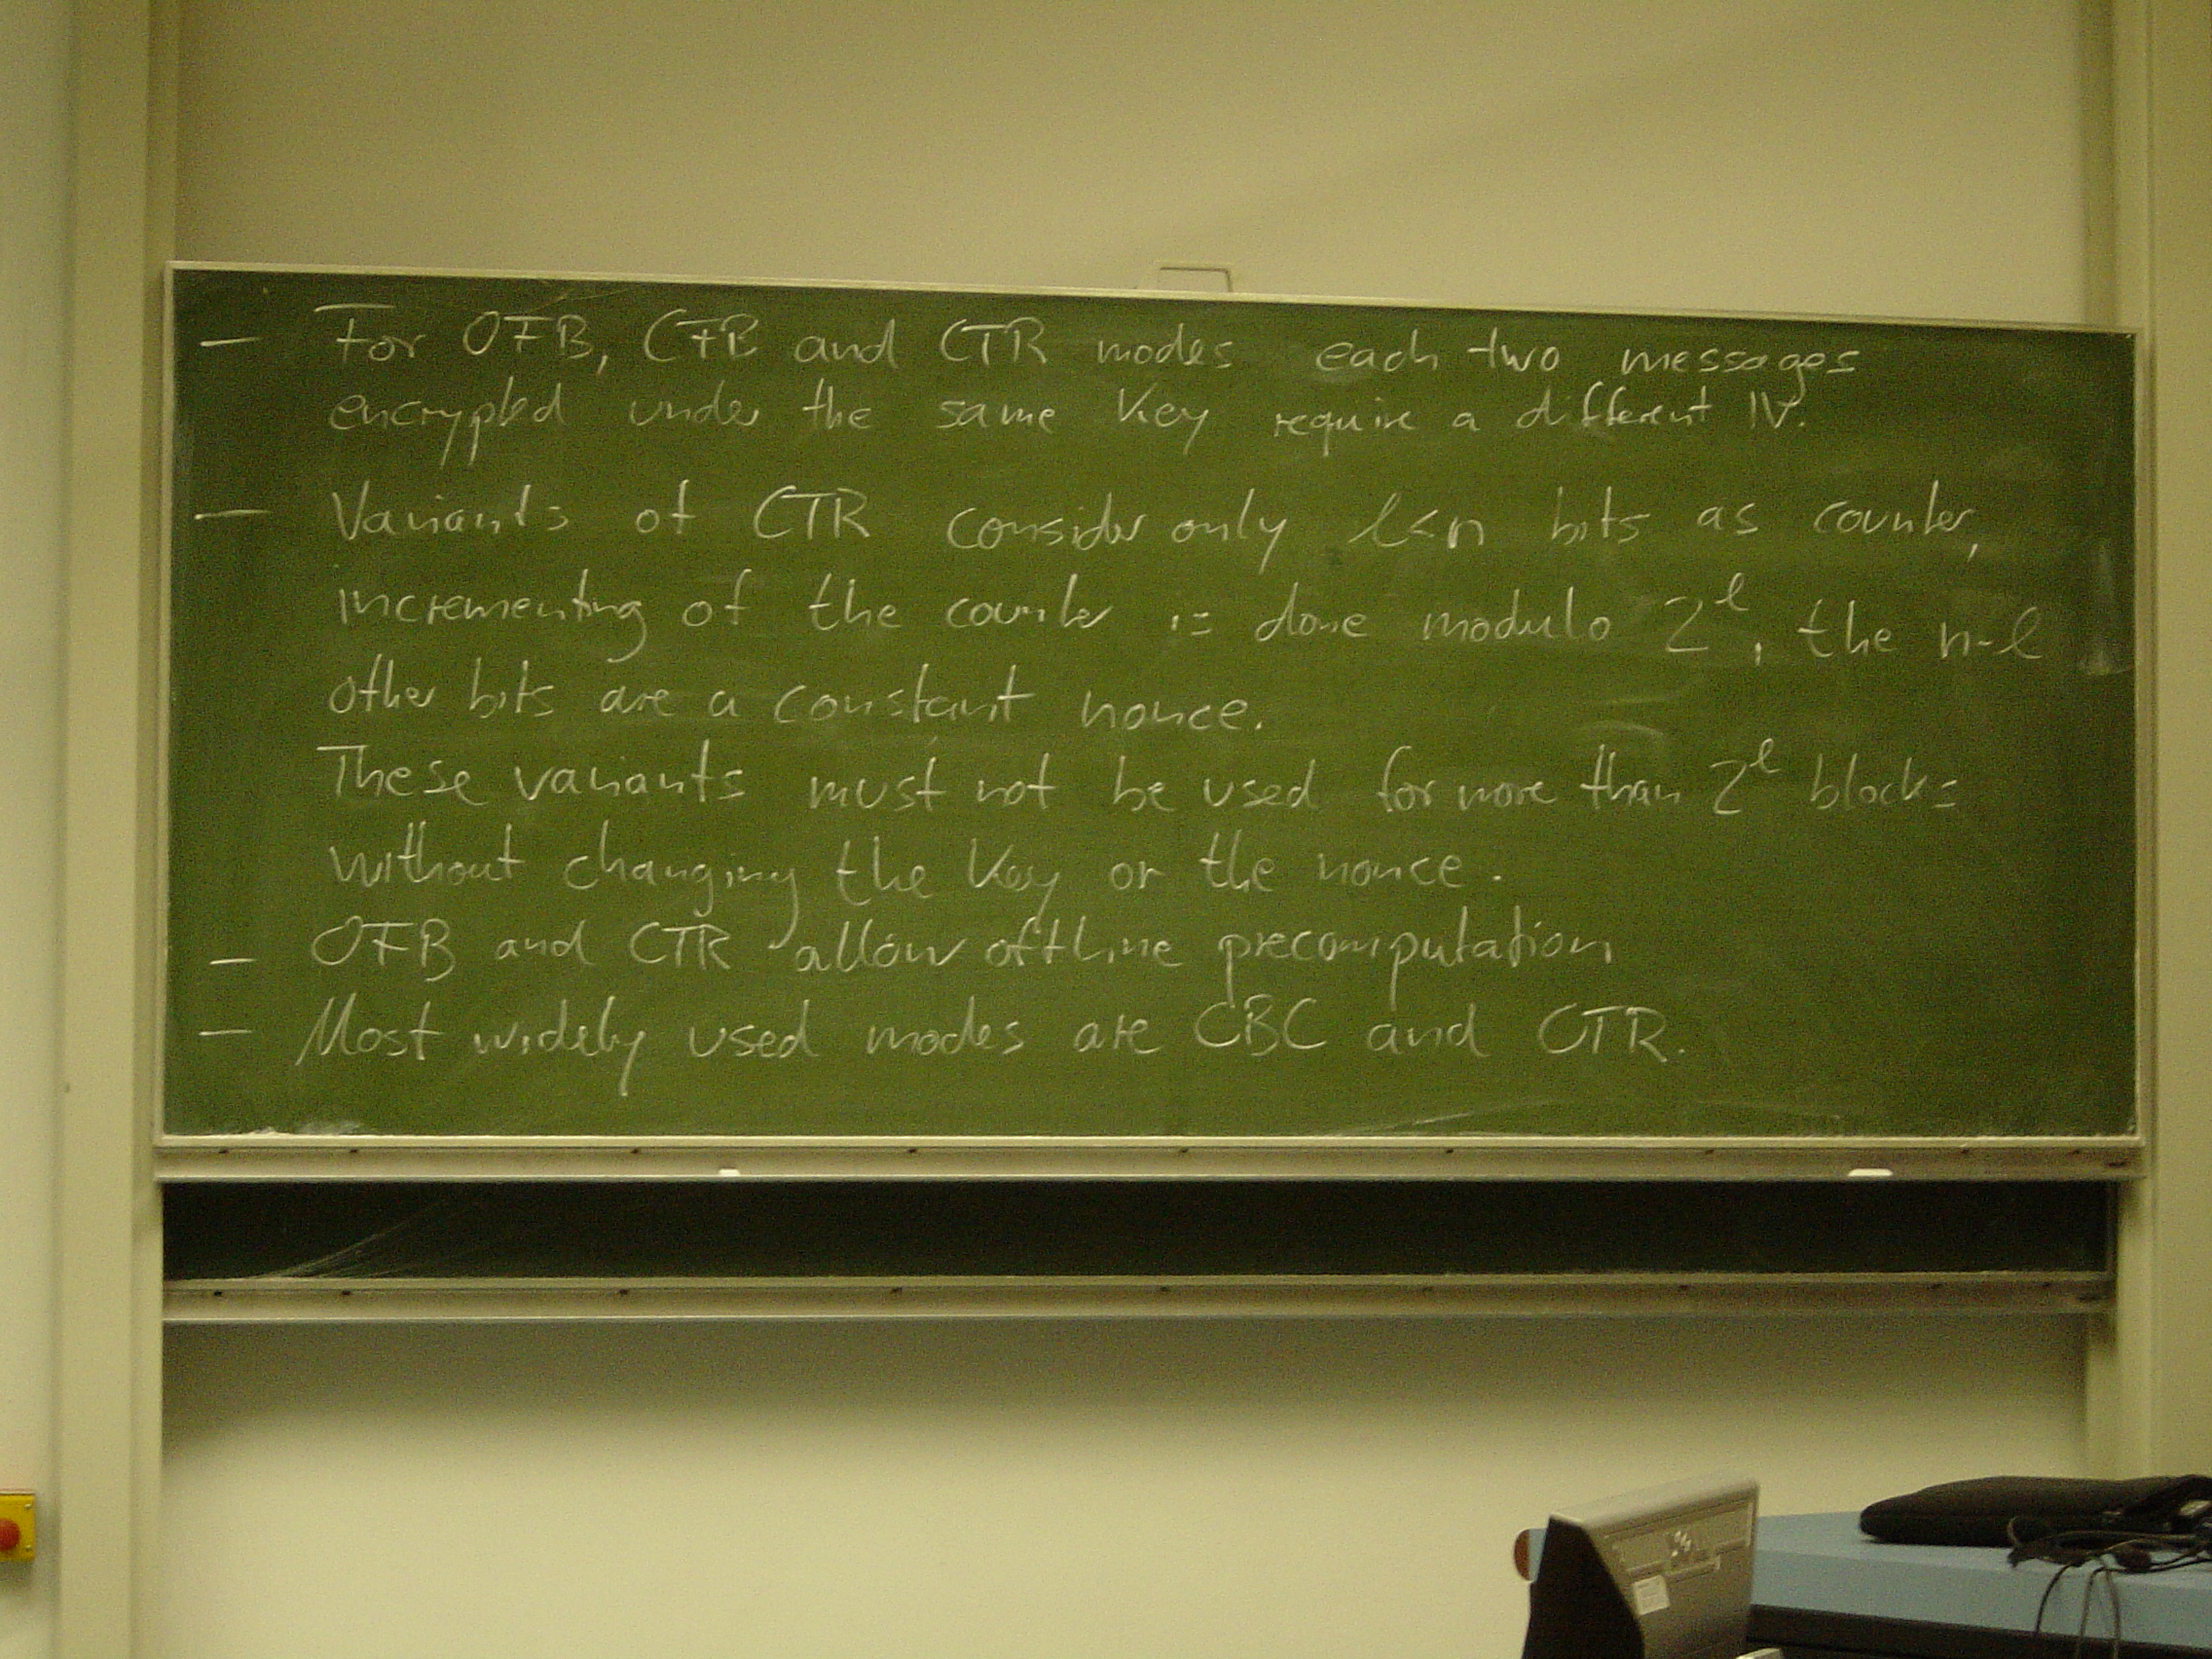 — For OFB, CFB and CTR modes each two messages
encrypted under the same key require a different IV.
— Variants of CTR consider only ℓ<n bits as counter,
incrementing of the counter is done modulo 2^ℓ, the n-ℓ
other bits are a constant nonce.
These variants must not be used for more than 2^ℓ blocks
without changing the key or the nonce.
— OFB and CTR allow offline precomputation
— Most widely used modes are CBC and CTR.